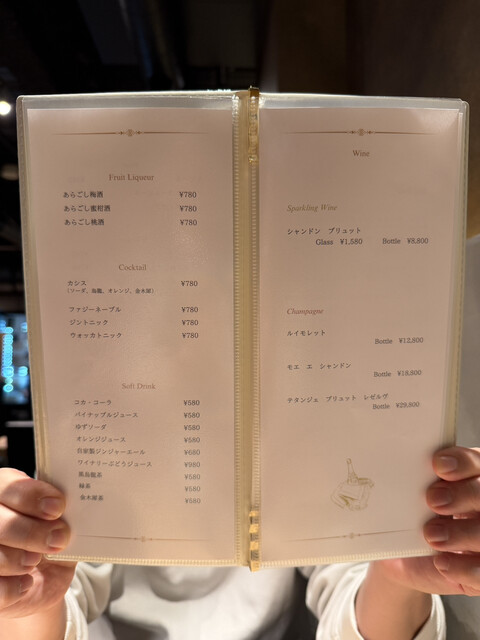 Fruit Liqueur
あらごし梅酒 ¥780
あらごし蜜柑酒 ¥780
あらごし桃酒 ¥780
Cocktail
カシス ¥780
(ソーダ、烏龍、オレンジ、金木犀)
ファジーネーブル ¥780
ジントニック ¥780
ウォッカトニック ¥780
Soft Drink
コカ・コーラ ¥580
パイナップルジュース ¥580
ゆずソーダ ¥580
オレンジジュース ¥580
自家製ジンジャーエール ¥680
ワイナリーぶどうジュース ¥980
黒烏龍茶 ¥580
緑茶 ¥580
金木犀茶 ¥580
Wine
Sparkling Wine
シャンドン ブリュット
Glass ¥1,580 Bottle ¥8,800
Champagne
ルイモレット
Bottle ¥12,800
モエ エ シャンドン
Bottle ¥18,800
テタンジェ ブリュット レゼルヴ
Bottle ¥29,800